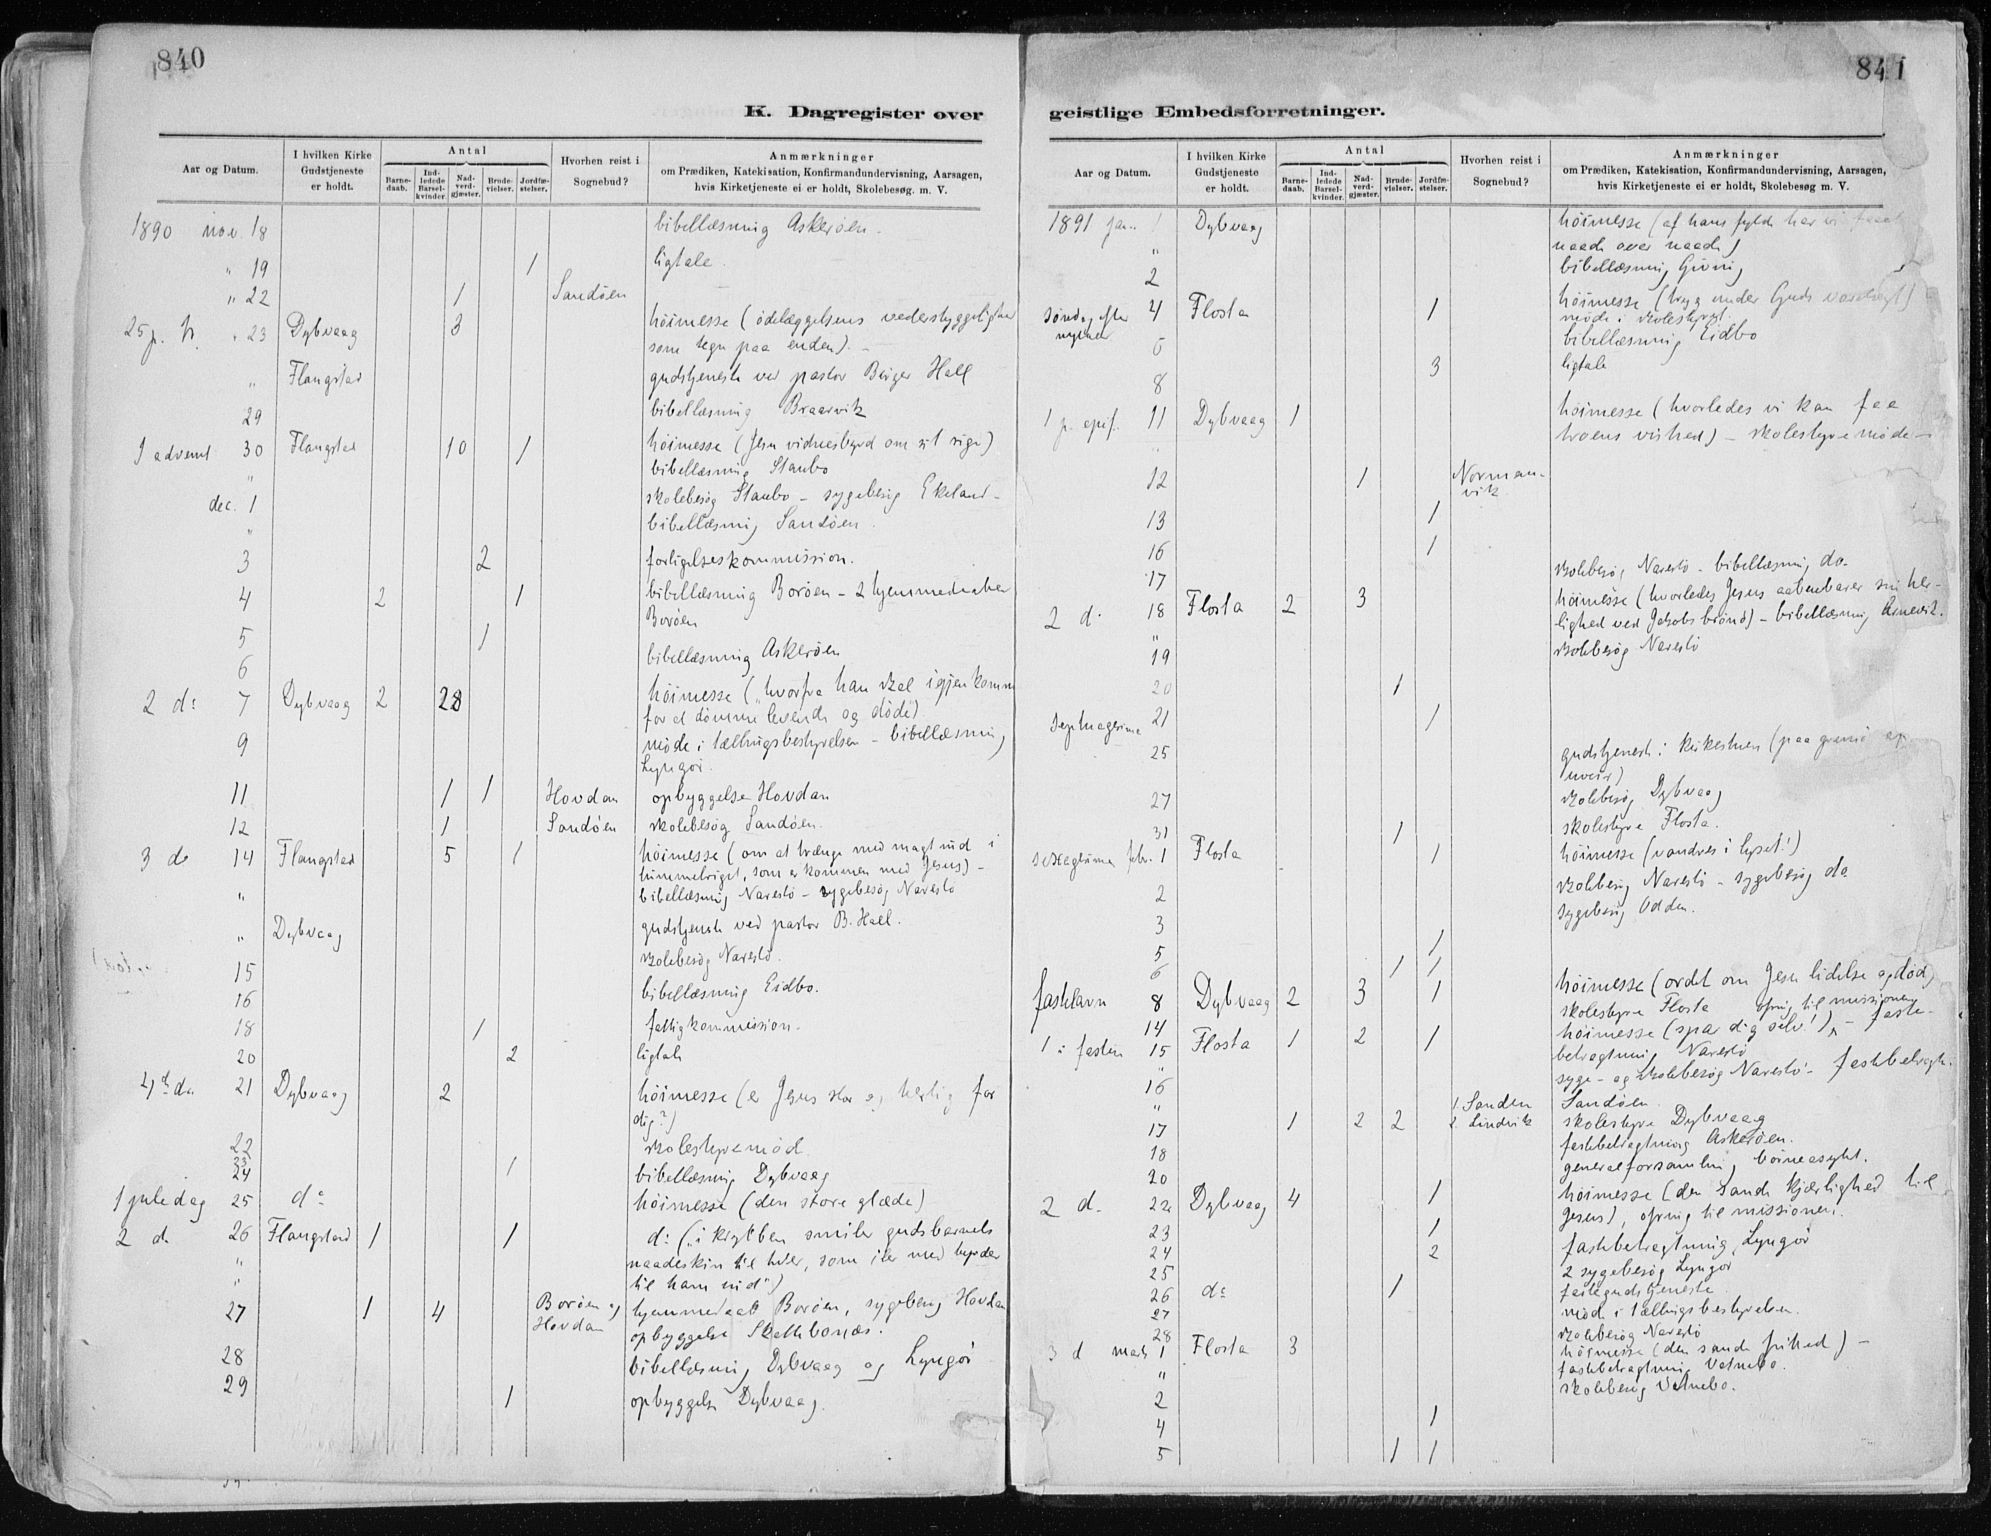 840
K. Dagregister over
Aar og Datum.
I hvilken Kirke Gudstjeneste er holdt.
Antal
Barnedaab.
Indledede Barselkvinder.
Nadverdgjæster.
Brudevielser.
Jordfæstelser.
Hvorhen reist i Sognebud?
Anmærkninger
om Prædiken, Katekisation, Konfirmandundervisning, Aarsagen,
hvis Kirketjeneste ei er holdt, Skolebesøg. m. V.
1890 nov. 18 bibellæsning Askerøen.
" 19 1 ligtale.
" 22 1 Sandøen
25 p. tr. " 23 Dybvaag 3 höimesse (ødelæggelsens vederstyggelighed
som tegn paa enden). –
" Flangstad gudstjeneste ved pastor Birger Hall
29 bibellæsning Braarvik
1 advent 30 Flangstad 10 1 höimesse (Jesu vidnesbyrd om sit rige)
" bibellæsning Staubo
dec. 1 skolebesøg Staubo – sygebesøg Ekeland –
" bibellæsning Sandøen.
3 2 forligelseskommission.
4 2 1 bibellæsning Borøen – 2 hjemmedøbte
Borøen
5 1
6 bibellæsning Askerøen
2 do 7 Dybvaag 2 28 höimesse ("hvorfra han skal igjenkomme
for at dømme levende og døde")
9 møde i tællingsbestyrelsen – bibellæsning
Lyngør.
11 1 1 Hovdan opbyggelse Hovdan
12 1 Sandøen skolebesøg Sandøen.
3 do 14 Flangstad 5 1 höimesse (om at trænge med magt ind i
himmelriget, som er kommen med Jesus) –
" bibellæsning Narestø – sygebesøg Narestø
" Dybvaag gudstjeneste ved pastor B. Hall.
15 skolebesøg Narestø.
16 bibellæsning Eidbo.
18 1 fattigkommission.
20 2 ligtale
4de do 21 Dybvaag 2 höimesse (er Jesus stor og herlig for
dig?)
22 skolestyremøde
23
24 1 bibellæsning Dybvaag
1 juledag 25 do höimesse (den store glæde)
2 do 26 Flangstad 1 1 do ("i krybben smiler gudsbarnets
" naadeskin til hver, som ier med byrder
" til ham ind")
27 1 4 Borøen og Hovdan hjemmedaab Borøen, sygebesøg Hovdan
opbyggelse
28 bibellæsning Dybvaag og Lyngør
29 1 opbyggelse Dybvaag.
841
geistlige Embedsforretninger.
Aar og Datum.
I hvilken Kirke Gudstjeneste er holdt.
Antal
Barnedaab.
Indledede Barselkvinder.
Nadverdgjæster.
Brudevielser.
Jordfæstelser.
Hvorhen reist i Sognebud?
Anmærkninger
om Prædiken, Katekisation, Konfirmandundervisning, Aarsagen,
hvis Kirketjeneste ei er holdt, Skolebesøg m. V.
1891 jan. 1 Dybvaag höimesse (af hans fylde har vi faaet
naade over naade)
" bibellæsning Gjving
2
søndag efter nytaar 4 Flosta 1 höimesse (tryg under Guds varetægt)
møde i skolestyret.
6 bibellæsning Eidbo
8 3 ligtale
1 p. epif. 11 Dybvaag 1 höimesse (hvorledes vi kan faa
troens vished) – skolestyremøde –
12 1 Normanvik
13 1
16 1
17 skolebesøg Narestø – bibellæsning do.
2 do 18 Flosta 2 3 höimesse (hvorledes Jesus aabenbarer sin herlighed
ved Jakobs brønd) – bibellæsning Arnevik.
"
19 skolebesøg Narestø
20 1
21 1
Septuagesima 25 gudstjeneste i kirkestuen (paa grund af
uveir)
27 skolebesøg Dybvaag
31 1 skolestyre Flosta.
sexagesima febr. 1 Flosta 1 höimesse (vandrer i lyset!)
2 skolebesøg Narestø – sygebesøg do
3 sygebesøg Odden.
5 1
6 1 1
fastelavn 8 Dybvaag 2 3 1 höimesse (ordet om Jesu lidelse og død)
14 skolestyre Flosta
1 i fasten 15 Flosta 1 2 1 höimesse (spar dig selv!) ofring til missionen – fastebetragtning
Narestø
"
16 syge- og skolebesøg Narestø – fastebetragtn.
" Sandøen.
17 1 2 2 1. Sanden 2. Lindvik skolestyre Dybvaag
18 fastebetragtning Askerøen.
20 generalforsamling børneasylet.
2 do 22 Dybvaag 4 1 höimesse (den sande kjærlighed til
Jesus), ofring til missionen.
23 1
24 2 fastebetragtning Lyngør
25 2 sygebesøg Lyngør
26 do 1 fastegudstjeneste.
27 møde i tællingsbestyrelsen.
28 skolebesøg Narestø
3 d marts 1 Flosta 3 höimesse (den sande frihed) –
" fastebetragtning Vatnebo.
2 skolebesøg Vatnebo.
4 1
5 1 1